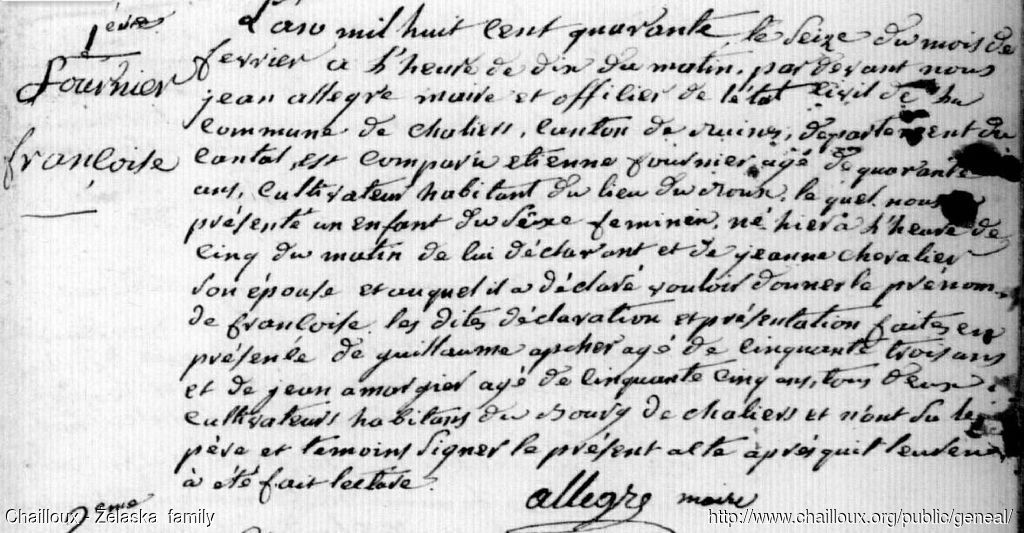 1ère
Fournier
françoise
L'an mil huit cent quarante le seize du mois de
fevrier a l'heure de dix du matin, pardevant nous
jean allegre maire et officier de l'état civil de la
commune de chaliers, canton de Ruines, departement du
cantal, est comparu etienne fournier agé de quarante
ans, cultivateur habitant du lieu du Roux, le quel nous
présenté un enfant du sèxe feminin, né hier à l'heure de
cinq du matin de lui déclarant et de jeanne chevalier
son épouse et auquel il a déclaré vouloir donner le prénom
de françoise. les dites déclaration et présentation faites en
présence de guillaume apcher agé de cinquante trois ans
et de jean amorgier agé de cinquante cinq ans, tous deux
cultivateurs habitans du Bourg de chaliers et n'ont su le
père et temoins signer le présent acte après qu'il leur en
à été fait lecture.
allegre maire
2ème
Chailloux - Zelaska family
http://www.chailloux.org/public/geneal/